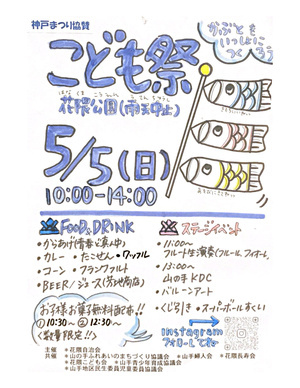 神戸まつり協賛
かぶとも
いっしょに
つくろう
こども祭
はなくまこうえん うてんちゅうし
花隈公園(雨天中止)
5/5(日)
10:00-14:00
FOOD&DRINK
・からあげ(青春ど真ん中)
・カレー ・たこせん ・ワッフル
・コーン ・フランクフルト
・BEER/ジュース(芳地商店)
お子様お菓子無料配布!!
①10:30~ ②12:30~
<数量限定!!>
ステージイベント
・11:00~
フルート生演奏(フルーム フィオーレ)
・13:00~
山の手KDC
・バルーンアート
・くじ引き ・スーパーボールすくい
Instagram
フォローしてね
主催 ★花隈自治会
共催 ★山の手ふれあいのまちづくり協議会 ★山手婦人会 ★花隈長寿会
★花隈こども会 ★山手青少年育成協議会
★山手地区民生委員児童委員協議会